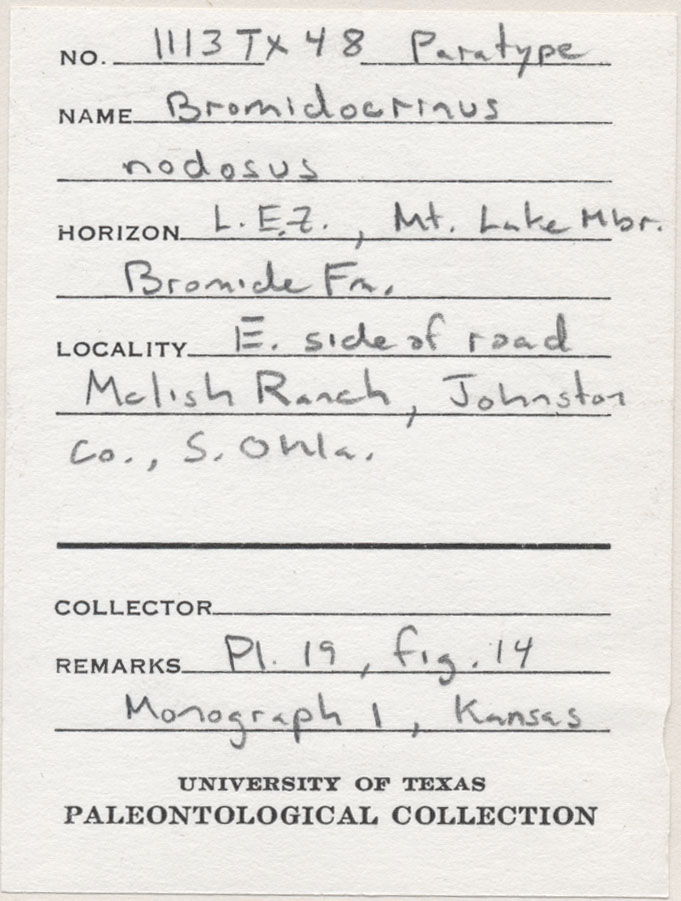 NO. 1113TX48 Paratype
NAME Bromidocrinus
nodosus
HORIZON L.E.Z., Mt. Lake Mbr.
Bromide Fm.
LOCALITY E. side of road
Mclish Ranch, Johnston
Co., S. Okla.
COLLECTOR
REMARKS Pl. 19, fig. 14
Monograph 1, Kansas
UNIVERSITY OF TEXAS
PALEONTOLOGICAL COLLECTION